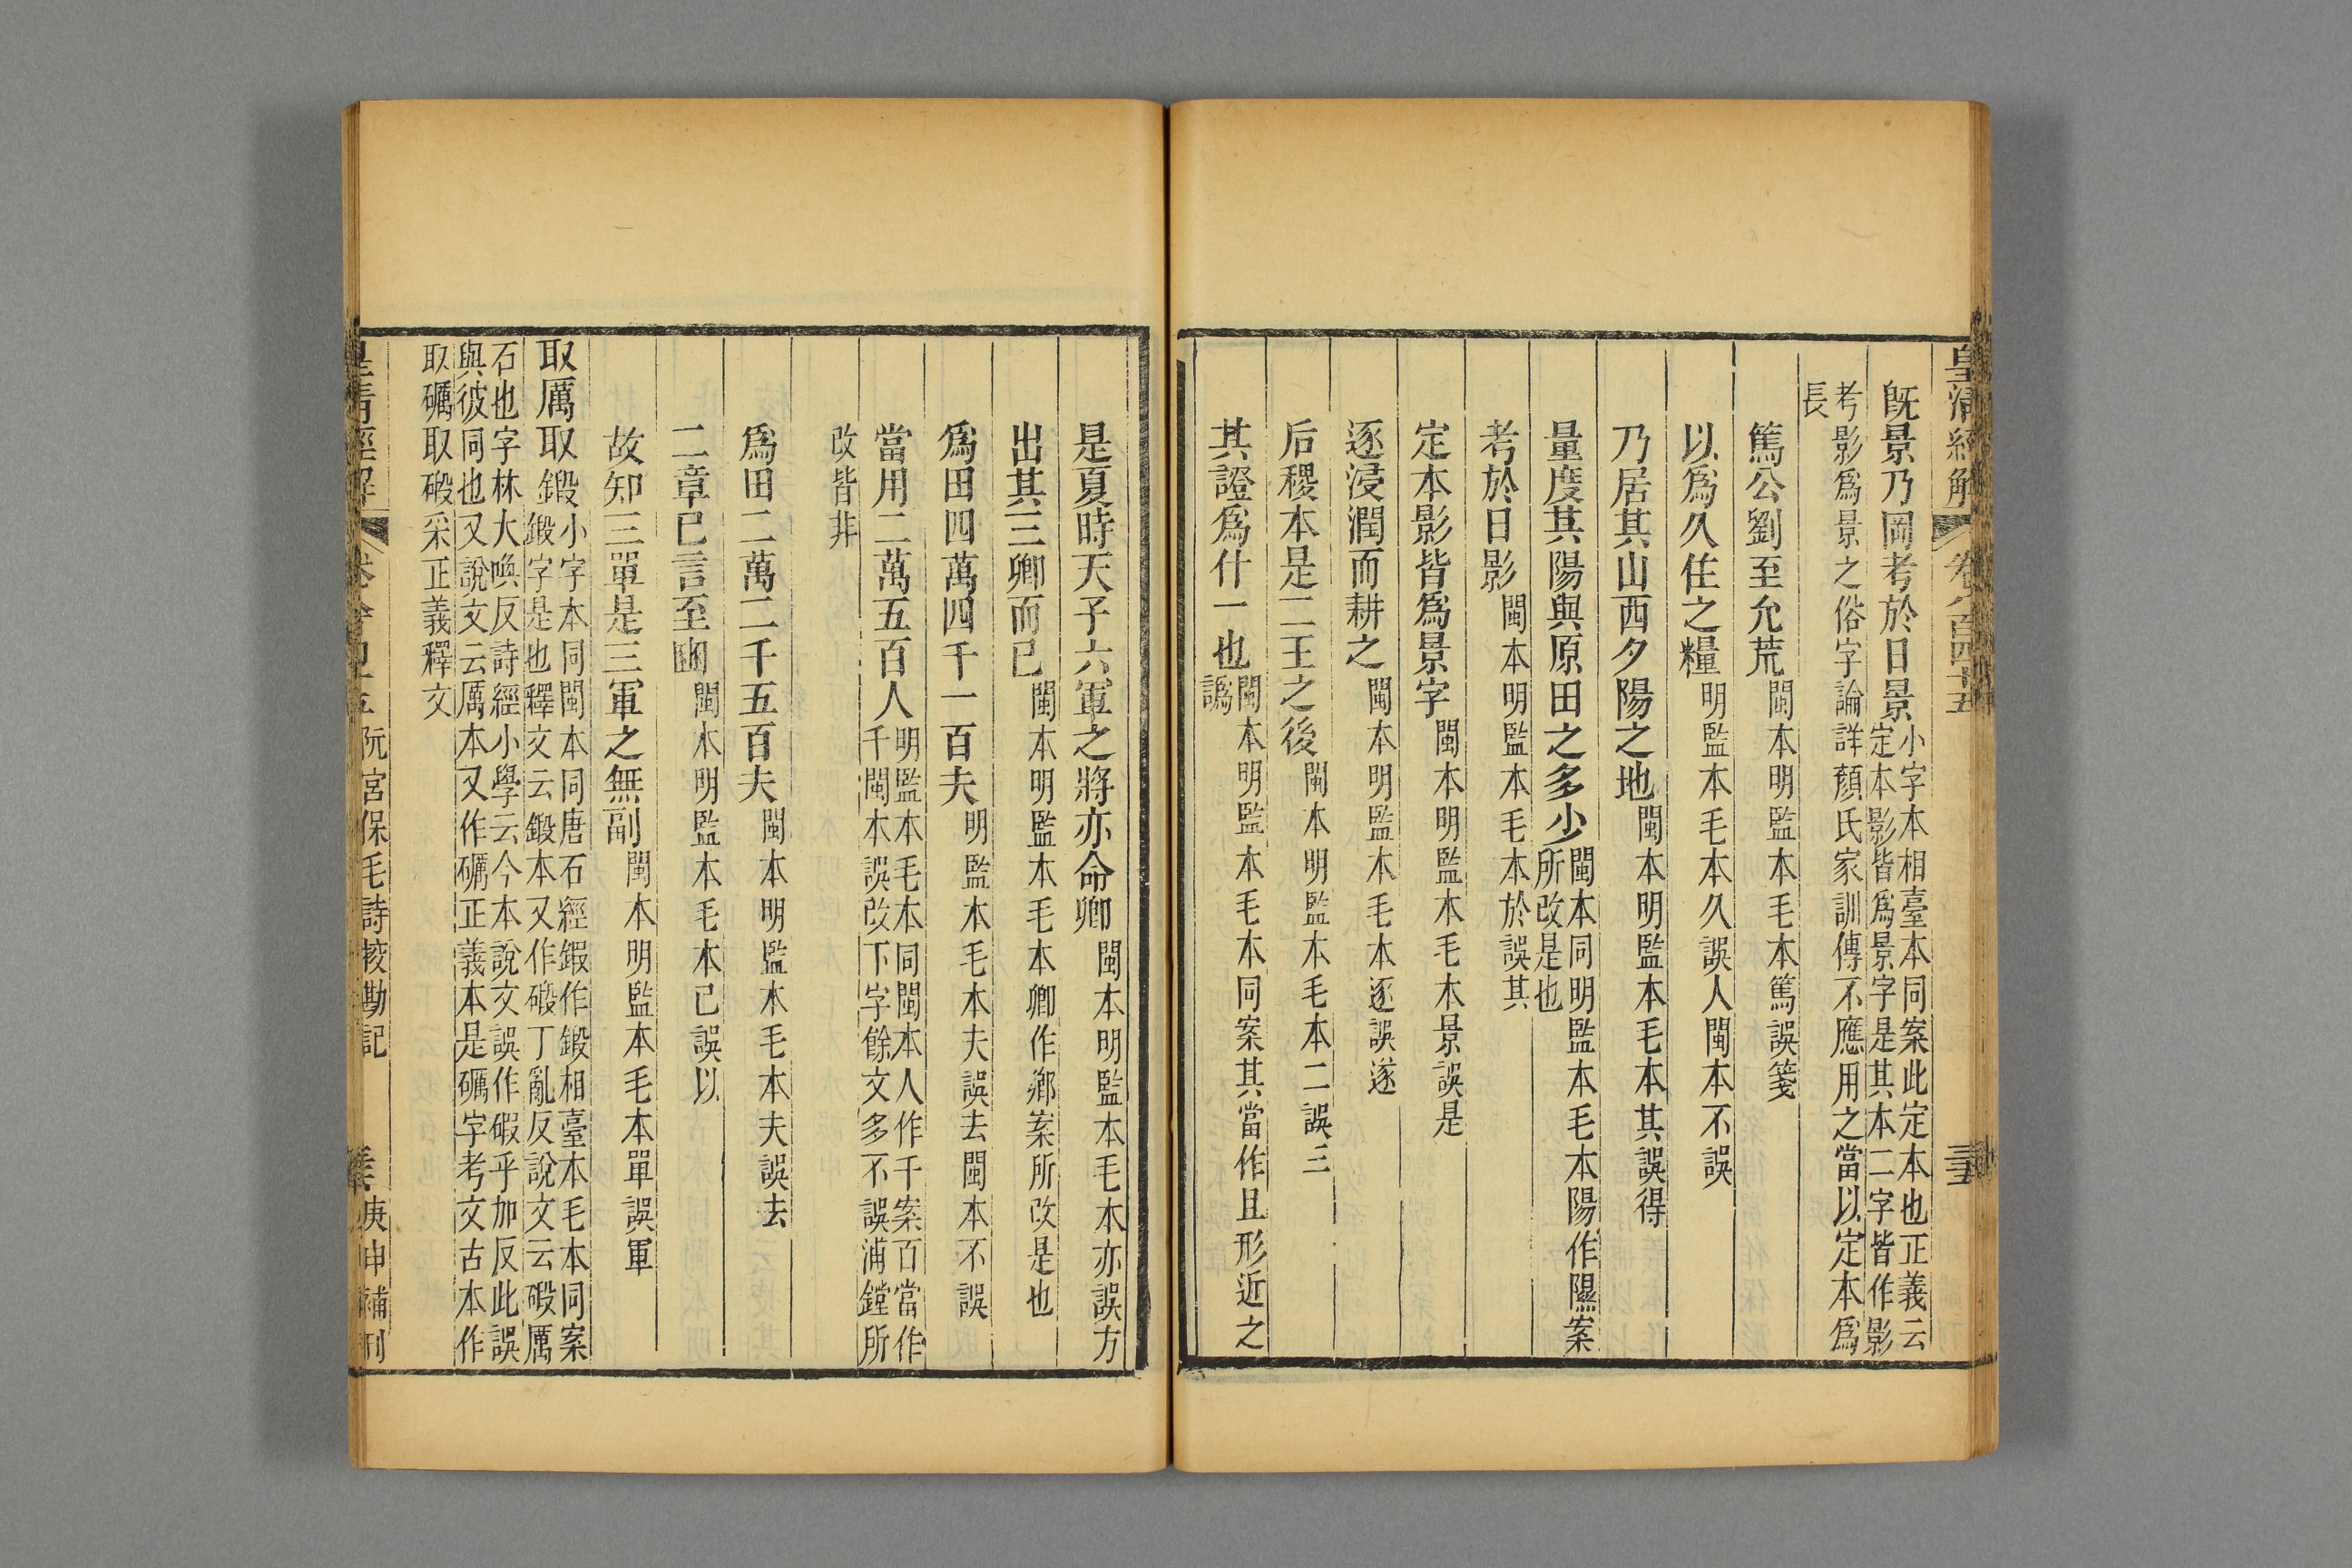 皇清經解 卷八百四十五 三五
既景乃岡考於日景小字本相臺本同案此定本也正義云
定本影皆爲景字是其本二字皆作影
考影爲景之俗字論詳顏氏家訓傳不應用之當以定本爲
長
篤公劉至允荒閩本明監本毛本篤誤箋
以爲久住之糧明監本毛本久誤人閩本不誤
乃居其山西夕陽之地閩本明監本毛本其誤得
量度其陽與原田之多少閩本同明監本毛本陽作隰案
所改是也
考於日影閩本明監本毛本於誤其
定本影皆爲景字閩本明監本毛本景誤是
逐浸潤而耕之閩本明監本毛本逐誤遂
后稷本是二王之後閩本明監本毛本二誤三
其證爲什一也閩本明監本毛本同案其當作且形近之
譌
是夏時天子六軍之將亦命卿閩本明監本毛本亦誤方
出其三卿而已閩本明監本毛本卿作鄉案所改是也
爲田四萬四千一百夫明監本毛本夫誤去閩本不誤
當用二萬五百人明監本毛本同閩本人作千案百當作
千閩本誤改下字餘文多不誤浦鏜所
改皆非
爲田二萬二千五百夫閩本明監本毛本夫誤去
二章已言至豳閩本明監本毛本已誤以
故知三單是三軍之無副閩本明監本毛本單誤軍
取厲取鍛小字本同閩本同唐石經鍜作鍛相臺本毛本同案
鍛字是也釋文云鍛本又作碫丁亂反說文云碫厲
石也字林大喚反詩經小學云今本說文誤作碬乎加反此誤
與彼同也又說文云厲本又作礪正義本是礪字考文古本作
取礪取碫采正義釋文
皇清經解 卷八百四十五 阮宮保毛詩挍勘記 庚申補刊